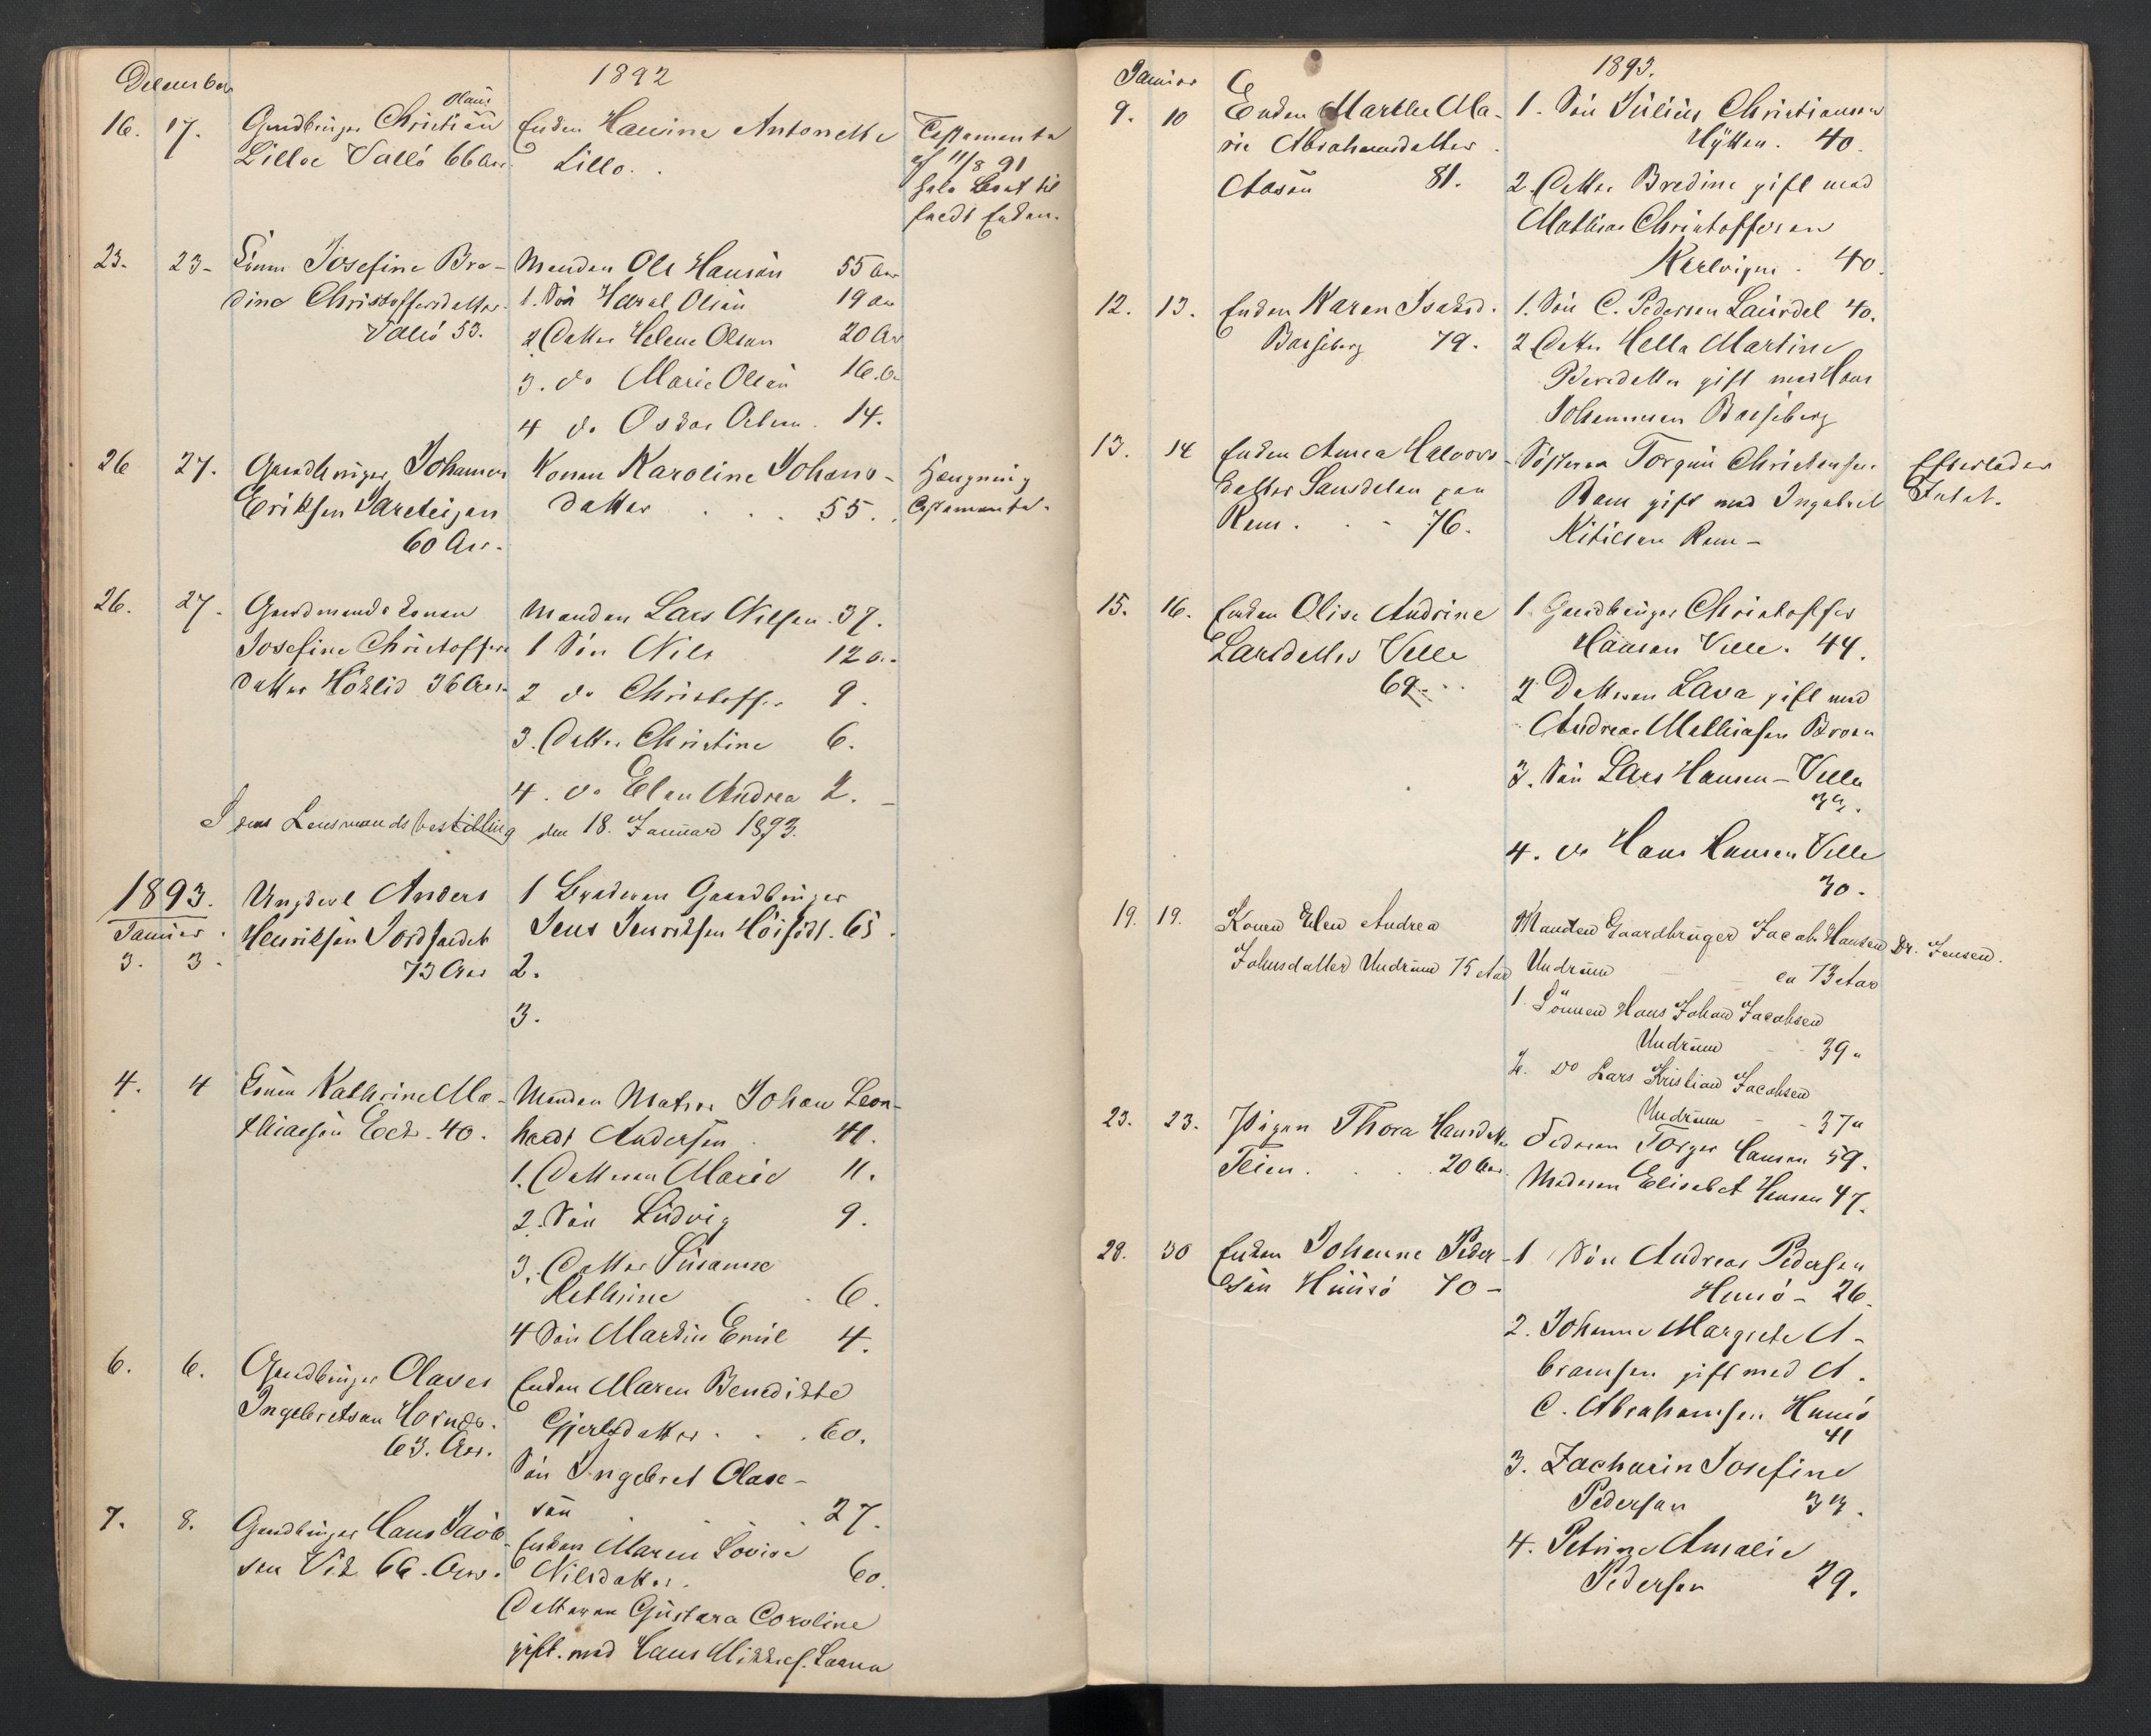 December 1892
16. 17. Gaardbruger Christian Hans
Lilloe Vallö 66 Aar
Enken Hansine Antonette
Lillo.
Testamente
af 11/8 91
hele Boet til
Enken.
23. 23- Konen Josefine Bre-
dine Christoffersdatter
Vallö 53.
Manden Ole Hansen 55 Aar
1. Sön Olsen 19 Aar
2 Datter Helene Olsen 20 Aar
3. do Marie Olsen 16. A
4 do Oskar 14.
26 27. Gaardbruger Johannes
Eriksen
60 Aar.
Konen Karoline Johans-
datter . . . 55.
Hængning
Testamente.
26. 27. Gaardmandskonen
Josefine Christoffers
datter 36 Aar
Manden Lars Nilsen. 37.
1 Sön Nils 12 a.
2 do Christoffer 9.
3. Datter Christine 6.
4. do Elen Andrea 2. -
Jens Lensmandsbestilling den 18. Januar 1893.
1893.
Januar.
3. 3. Ungkarl Anders
Henriksen
73 Aar
1 Broderen Gaardbruger
Jens Henriksen 65.
2.
3.
4. 4 Konen Kathrine Ma-
thiassen Eek. 40.
Manden Matros Johan Leon-
hardt Andersen . 41.
1. Datteren Marie 11.
2. Sön Ludvig 9.
3. Datter Susanne
Kathrine . 6.
4 Sön Martin Emil 4.
6. 6. Gaardbruger Olaves
Ingebretsen
63. Aar.
Enken Maren Benedikte
Gjertsdatter . . . 60.
Sön Ingebret Olave-
sen . . 27.
7. 8. Gaardbruger Hans Jacob-
sen Vik 66. Aar.
Enken Maren Lovise
Nilsdatter. 60.
Datteren Gustava Caroline
gift. med Hans
Januar 1893.
9. 10 Enken Marthe Ma-
rie Abrahamsdatter
Aasen 81.
1. Sön Julius Christiansen
Hytten. 40.
2. Datter Bredine gift med
Mathias Christoffersen
40.
12. 13. Enken Karen Isaksd.
Basseberg 79.
1. Sön C. Pedersen 40.
2 Datter Hella Martine
Pedersdatter gift med Hans
Johannesen Basseberg
13. 14 Enken Anna Halvors-
datter
Ram. . - 76.
Søsteren Torgun Christensen
Ram gift med Ingebret
Kittilsen Ram -
Efterlader
Intet.
15. 16. Enken Olise Andrine
Larsdatter Velle
69.
1. Gaardbruger Christoffer
Hansen Velle. 44.
2 Datteren Lava gift med
Andreas Mathiasen
3. Sön Lars Hansen - Velle
39.
4. do Hans Hansen Velle
30.
19. 19. Konen Elen Andrea
Johnsdatter Undrum 75 Aar
Manden Gaardbruger Jacob Hansen
Undrum ca 73 Aar
Dr. Jensen.
1. Sönnen Hans Johan Jacobsen
Undrum - - 39 "
2. Do Lars Kristian Jacobsen
Undrum - - 37 "
23. 23. Pigen Thora Hansdatter
Teien . . . 20 Aar.
Faderen Torger Hansen 59.
Moderen Elisabet Hansen 47.
28. 30 Enken Johanne Peder-
sen Husö 70 -
1 Sön Andreas Pedersen
Husö - 26.
2. Johanne Margrete A-
bramsen gift med A.
C. Abrahamsen Husö
41
3. Zacharin Josefine
Pedersen 33.
4. Petrine Amalie
Pedersen 29.